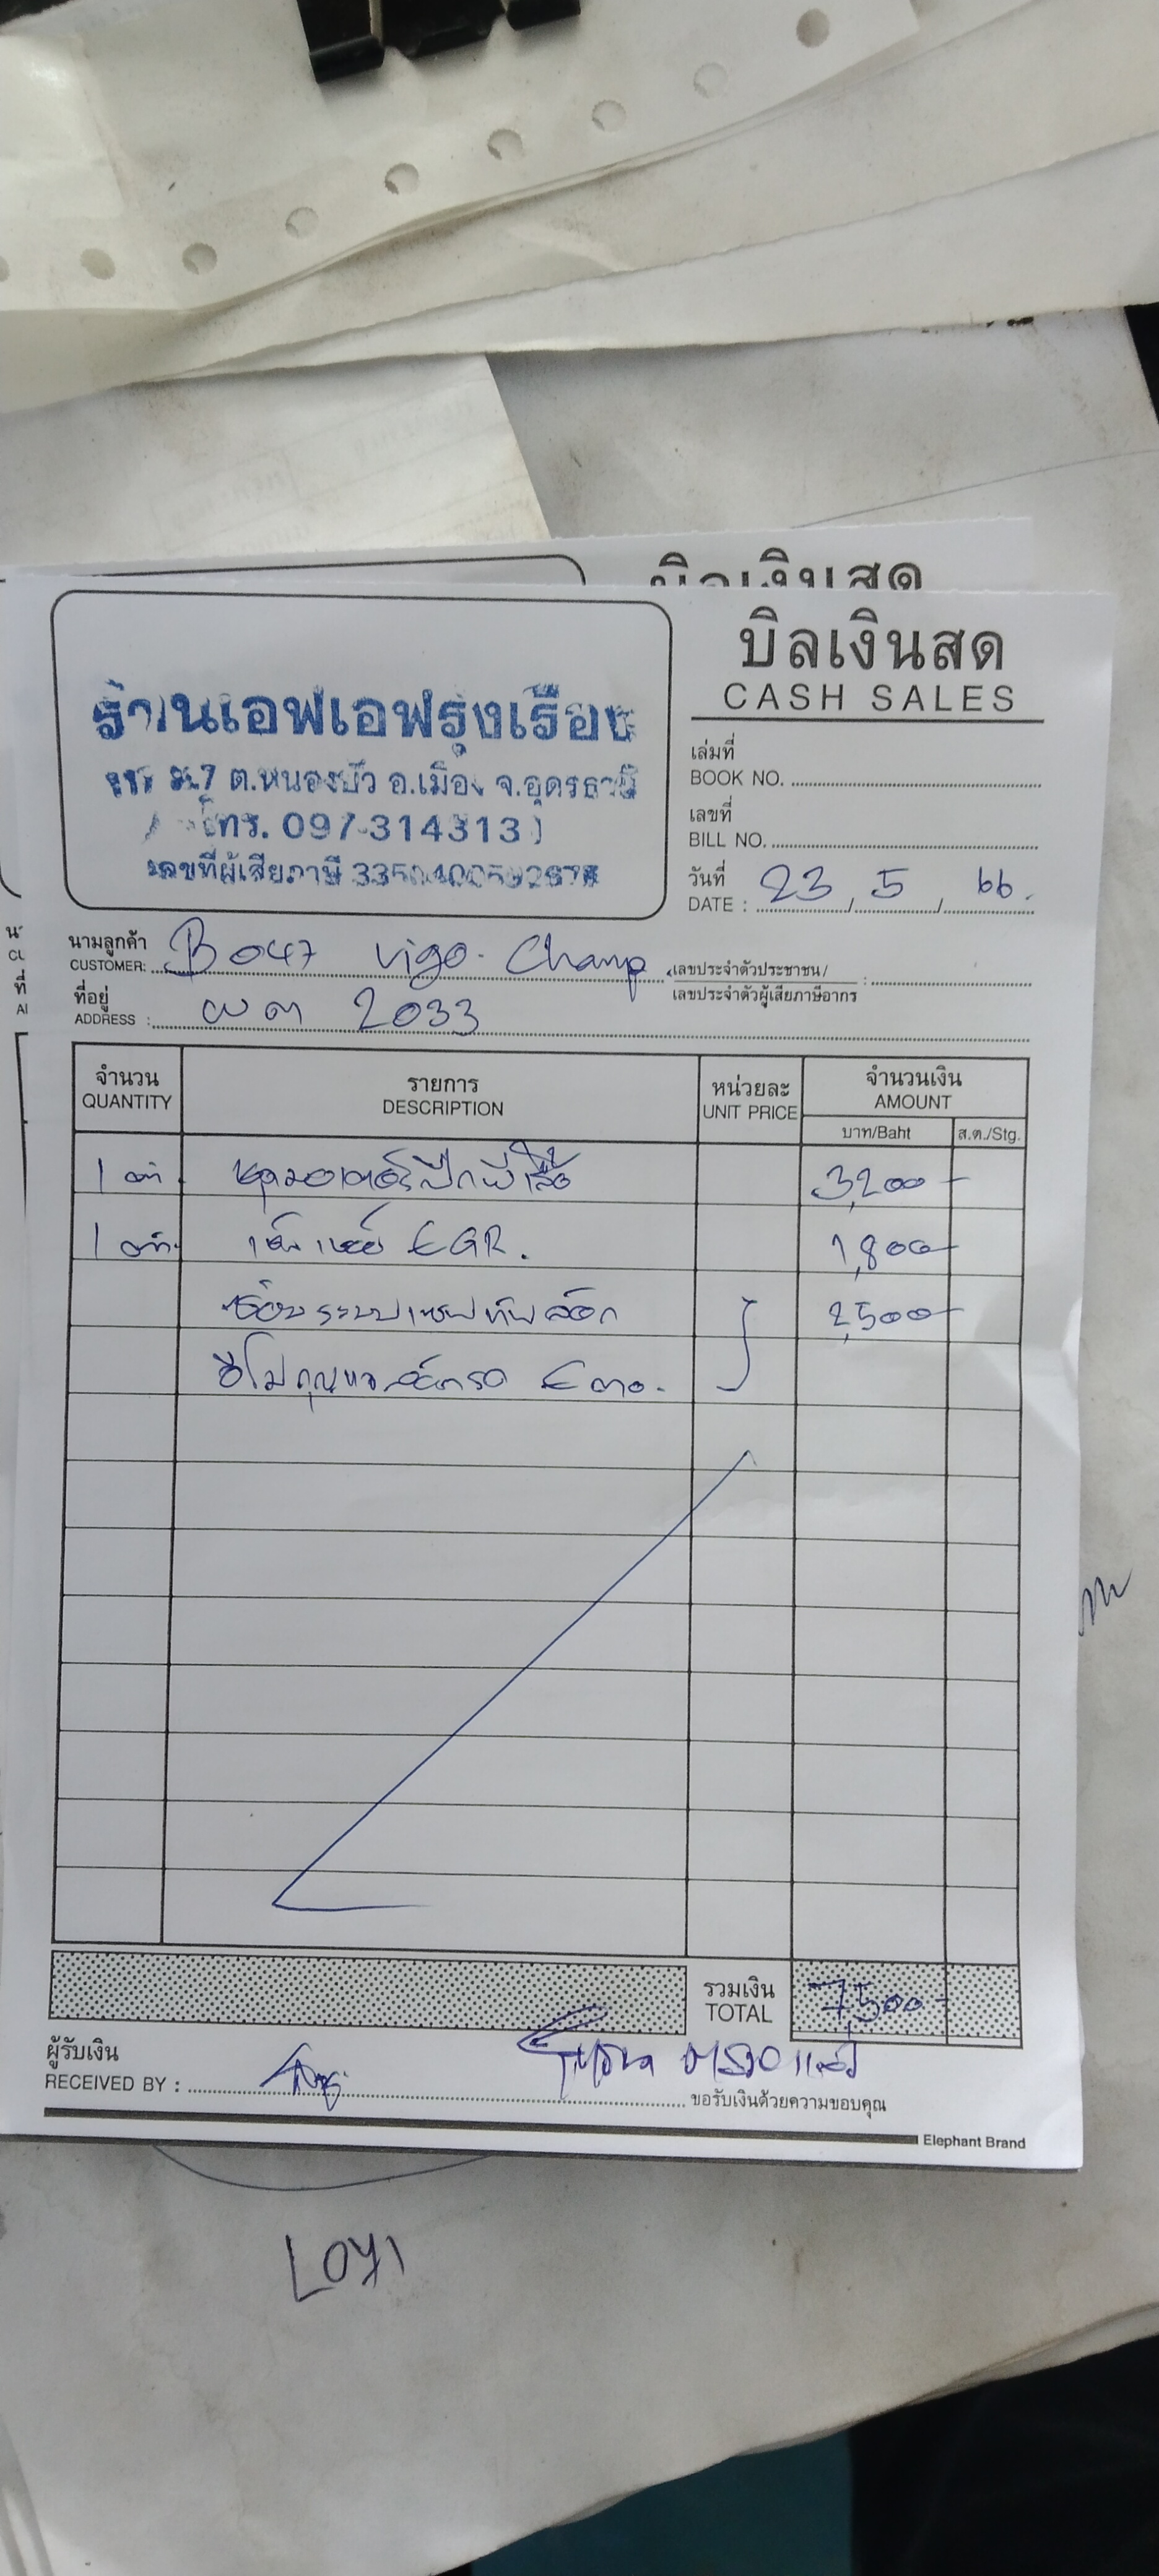 บิลเงินสด
บิลเงินสด
CASH SALES
ร้านเอฟเอฟรุ่งเรือง
ม.7 ต.หนองบัว อ.เมือง จ.อุดรธานี
โทร. 097-314313
เลขที่ผู้เสียภาษี
เล่มที่
BOOK NO.
เลขที่
BILL NO.
วันที่
DATE : 23 / 5 / 66.
นามลูกค้า
CUSTOMER: B047 Vigo. Champ
เลขประจำตัวประชาชน/
เลขประจำตัวผู้เสียภาษีอากร :
ที่อยู่
ADDRESS : 2033
จำนวน รายการ หน่วยละ จำนวนเงิน
QUANTITY DESCRIPTION UNIT PRICE AMOUNT
บาท/Baht ส.ต./Stg.
1 ตัว ชุดมอเตอร์ปีกผีเสื้อ 3,200 -
1 ตัว เซ็นเซอร์ EGR. 1,800 -
ซ่อมระบบ 2,500 -
รวมเงิน
TOTAL 7,500 -
ผู้รับเงิน
RECEIVED BY :
ตรวจแล้ว
ขอรับเงินด้วยความขอบคุณ
Elephant Brand